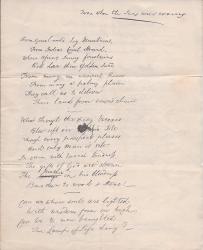 From Greenland's icy Mountains,
From India's Coral Strand,
Where Afric's Sunny fountains
Roll down their Golden Sand,
From many an ancient River
From many a palmy plain
They call us to deliver
Their land from error's chain

What though the spicy Breezes
Blow soft Isle
Though every prospect pleases
And only Man is vile
In vain with lavish Kindness
The gifts of God are strewn
The Heathen in his blindness
Bows down to wood & stone!

Can we whose souls are lighted
With wisdom from on high
Can we to men benighted
The Lamp of life deny?